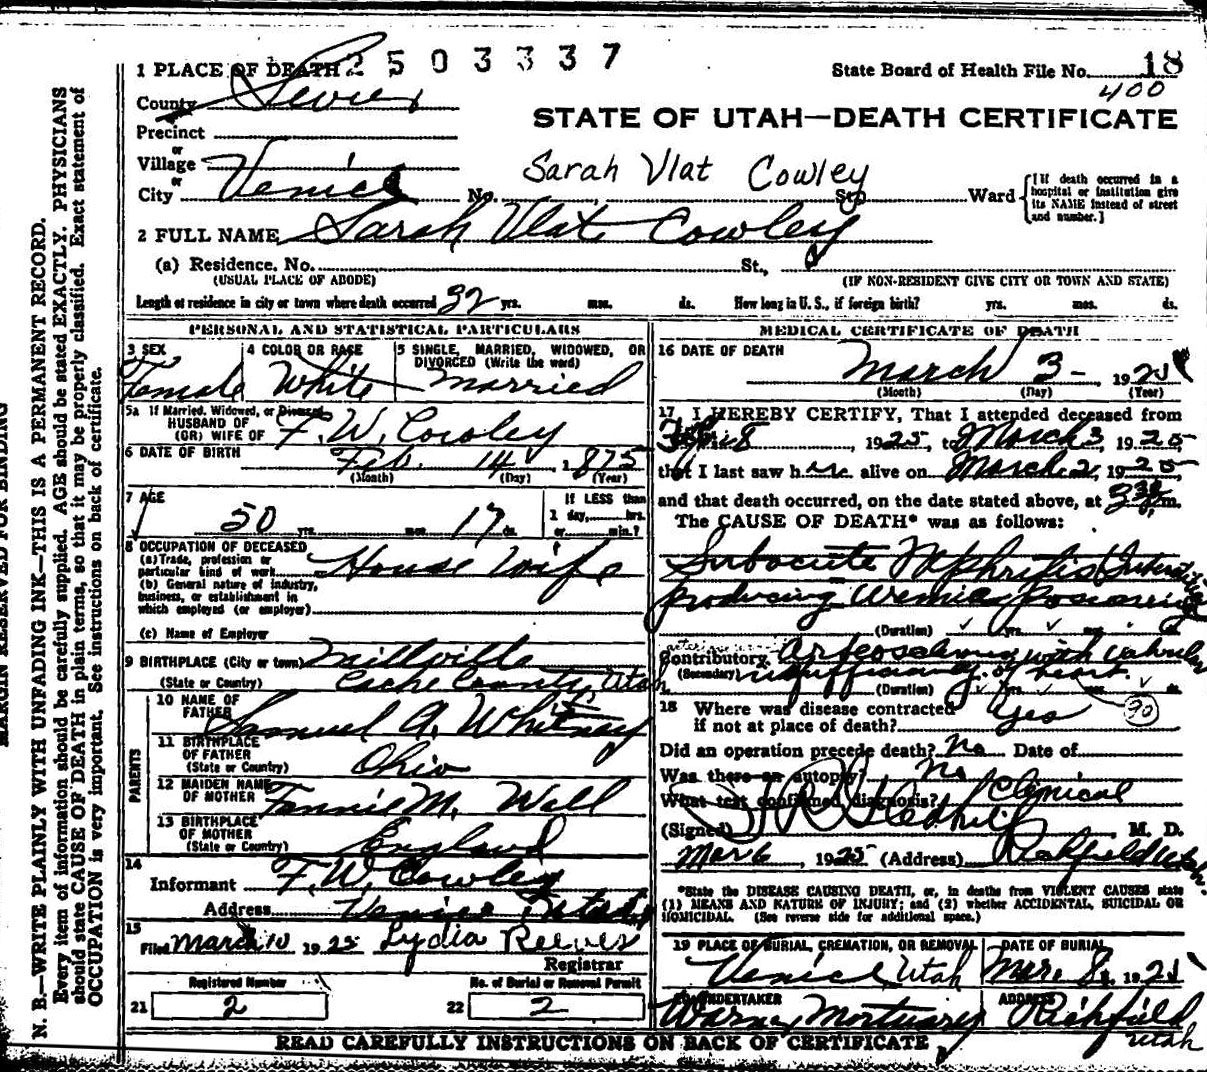 2503337
1 PLACE OF DEATH
State Board of Health File No. 18
400
County Sevier
STATE OF UTAH—DEATH CERTIFICATE
Precinct
or
Village
or
City Venice No. St. Ward
Sarah Vlat Cowley
[If death occurred in a hospital or institution give its NAME instead of street and number.]
2 FULL NAME Sarah Vlat Cowley
(a) Residence. No. St.,
(USUAL PLACE OF ABODE) (IF NON-RESIDENT GIVE CITY OR TOWN AND STATE)
Length of residence in city or town where death occurred 32 yrs. mos. ds. How long in U. S., if foreign birth? yrs. mos. ds.
PERSONAL AND STATISTICAL PARTICULARS
3 SEX
Female
4 COLOR OR RACE
White
5 SINGLE, MARRIED, WIDOWED, OR
DIVORCED (Write the word)
married
5a If Married, Widowed, or Divorced
HUSBAND OF
(OR) WIFE OF F. W. Cowley
6 DATE OF BIRTH Feb. 14 1875
(Month) (Day) (Year)
7 AGE
50 yrs. mos. 17 ds.
If LESS than
1 day, hrs.
or min.?
8 OCCUPATION OF DECEASED
(a) Trade, profession or
particular kind of work House Wife
(b) General nature of industry,
business, or establishment in
which employed (or employer)
(c) Name of Employer
9 BIRTHPLACE (City or town) Millville
(State or Country) Cache County, Utah
PARENTS
10 NAME OF
FATHER Samuel A. Whitney
11 BIRTHPLACE
OF FATHER
(State or Country) Ohio
12 MAIDEN NAME
OF MOTHER Fannie M. Wall
13 BIRTHPLACE
OF MOTHER
(State or Country) England
14
Informant F. W. Cowley
Address Venice Utah
15
Filed March 10 1925 Lydia Reeves
Registrar
Registered Number
21 2
No. of Burial or Removal Permit
22 2
MEDICAL CERTIFICATE OF DEATH
16 DATE OF DEATH
March 3- 1925
(Month) (Day) (Year)
17 I HEREBY CERTIFY, That I attended deceased from
8, 1925, to March 3, 1925
that I last saw her alive on March 2, 1925,
and that death occurred, on the date stated above, at 3 30 m.
The CAUSE OF DEATH* was as follows:
Subacute Nphritis
producing Uremic
(Duration) yrs. mos. ds.
Contributory with valvular
(Secondary) insufficiency of heart.
(Duration) yrs. mos. ds.
18 Where was disease contracted
if not at place of death? yes
90
Did an operation precede death? No Date of
Was there an autopsy? No
What test confirmed diagnosis? Clinical
(Signed) M. D.
Mar 6, 1925 (Address) Richfield Utah.
*State the DISEASE CAUSING DEATH, or, in deaths from VIOLENT CAUSES state
(1) MEANS AND NATURE OF INJURY; and (2) whether ACCIDENTAL, SUICIDAL OR
HOMICIDAL. (See reverse side for additional space.)
19 PLACE OF BURIAL, CREMATION, OR REMOVAL
Venice Utah
DATE OF BURIAL
Mar. 8, 1925
UNDERTAKER
Mortuary
ADDRESS
Richfield
Utah
READ CAREFULLY INSTRUCTIONS ON BACK OF CERTIFICATE
MARGIN RESERVED FOR BINDING
N. B.—WRITE PLAINLY WITH UNFADING INK—THIS IS A PERMANENT RECORD.
Every item of information should be carefully supplied. AGE should be stated EXACTLY. PHYSICIANS
should state CAUSE OF DEATH in plain terms, so that it may be properly classified. Exact statement of
OCCUPATION is very important. See instructions on back of certificate.